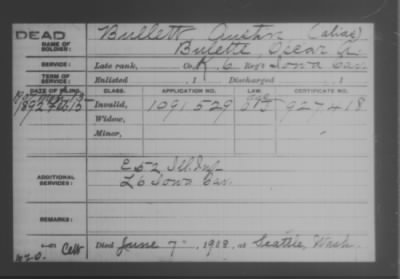 DEAD
NAME OF SOLDIER:
Bullett, Gustav (alias)
Bulette, Oscar A.
SERVICE:
Late rank, Co. K, 6 Reg't Iowa Cav.
TERM OF SERVICE:
Enlisted , 1 Discharged , 1
DATE OF FILING. CLASS. APPLICATION NO. LAW. CERTIFICATE NO.
1892 Feb 15 Invalid, 1091529 927418
Widow,
Minor,
ADDITIONAL SERVICES:
E 52 Ill. Inf.
L 6 Iowa Cav.
REMARKS:
Died June 7, 1918, at Seattle, Wash.